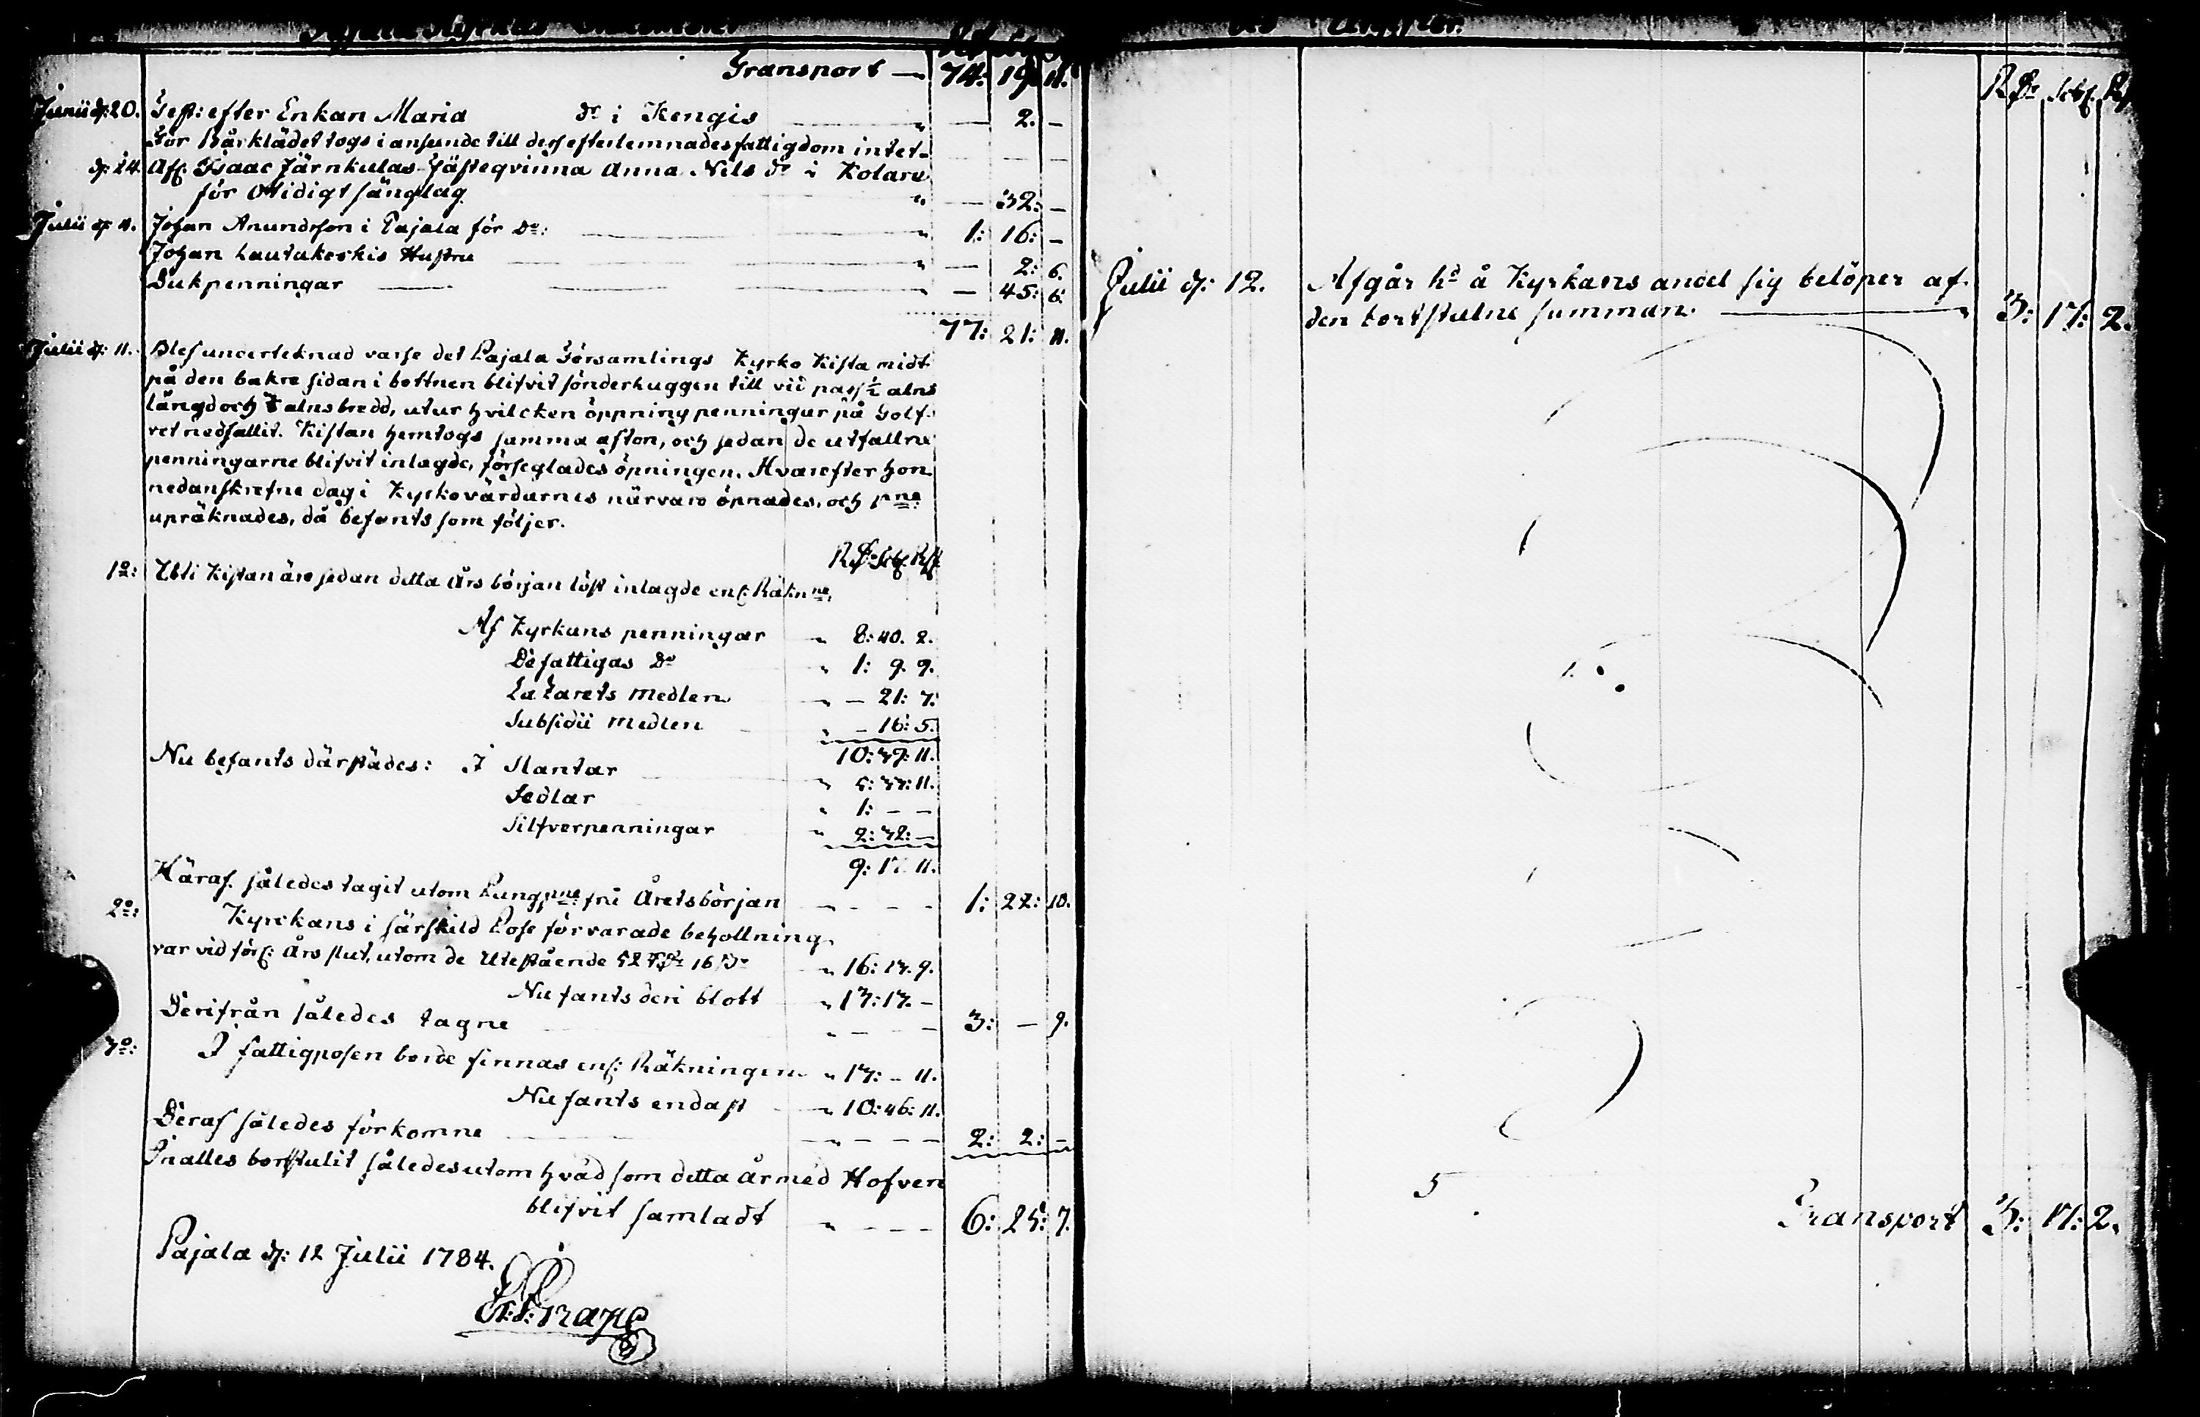 Transport — 74: 19. 11.
Junii d: 20. Test: efter Enkan Maria D:r i Kengis " — 2. —
För Bårklädet togs i anseende till dess efterlemnades fattigdom intet — — — —
d: 24. Aff. Isaac Järnkulas Fästeqvinna Anna Nils D:r i Kolare
för otidigt sänglag " — 32: —
Julii d: 4. Johan Anundsson i Pajala för D:o: " 1: 16: —
Johan Lautakoskis Hustru " — 2: 6.
Bukpenningar " — 45: 6.
77: 21: 11.
Julii d: 11. Blef undertecknad varse det Pajala Församlings Kyrko Kista midt
på den bakre sidan i bottnen blifvit sönderhuggen till vid pass ½ alns
längd och alns bredd, utur hvilcken öppning penningar på Golf-
vet nedfallit. Kistan hemtogs samma afton, och sedan de utfallne
penningarne blifvit inlagde, förseglades öpningen. Hvarefter hon
nedanskrefne dag i Kyrkovärdarnes närvaro öpnades, och p:ne
upräknades, då befants som följer.
Rd:r sch. Rst
1:o: Uti Kistan äro sedan detta Års början löst inlagde enl: Räkn:ne.
Af Kyrkans penningar " 8: 40. 2.
De fattigas D:o " 1: 9. 9.
Lazarets medlen " — 21: 7.
Subsidii medlen " — 16: 5.
10: 39: 11.
Nu befants därstädes: I Slantar " 5: 33: 11.
Sedlar " 1: — —
Silfverpenningar " 2: 32: —
9: 17. 11.
Häraf således tagit utom Pung p:ne frå Årets början " — — — 1: 22: 10.
2:o: Kyrckans i särskild Pose förvarade behollning
var vid förl: Års slut, utom de Utestående 52 Rd:r 16 s:r " 16: 13. 9.
Nu fants deri blott " 13: 13. —
Derifrån således tagne " — — — 3: — 9.
3:o: I fattigposen borde finnas enl: Räkningen " 13: — 11.
Nu fants endast " 10: 46: 11.
Deraf således förkomne " — — — 2: 2: —
Inalles bortstulit således utom hvad som detta År med Hofven
blifvit samladt " — — — 6: 25: 7.
Pajala d: 12 Julii 1784.
Grape
Rd:r sch. Rst
Julii d: 12. Afgår h:d å Kyrkans andel sig belöper af
den bortstulne summan. " 3: 17: 2.
5
Transport 3: 17: 2.